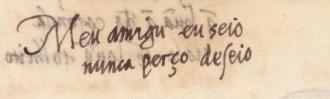 Meu amigu eu seio
nunca perço deseio